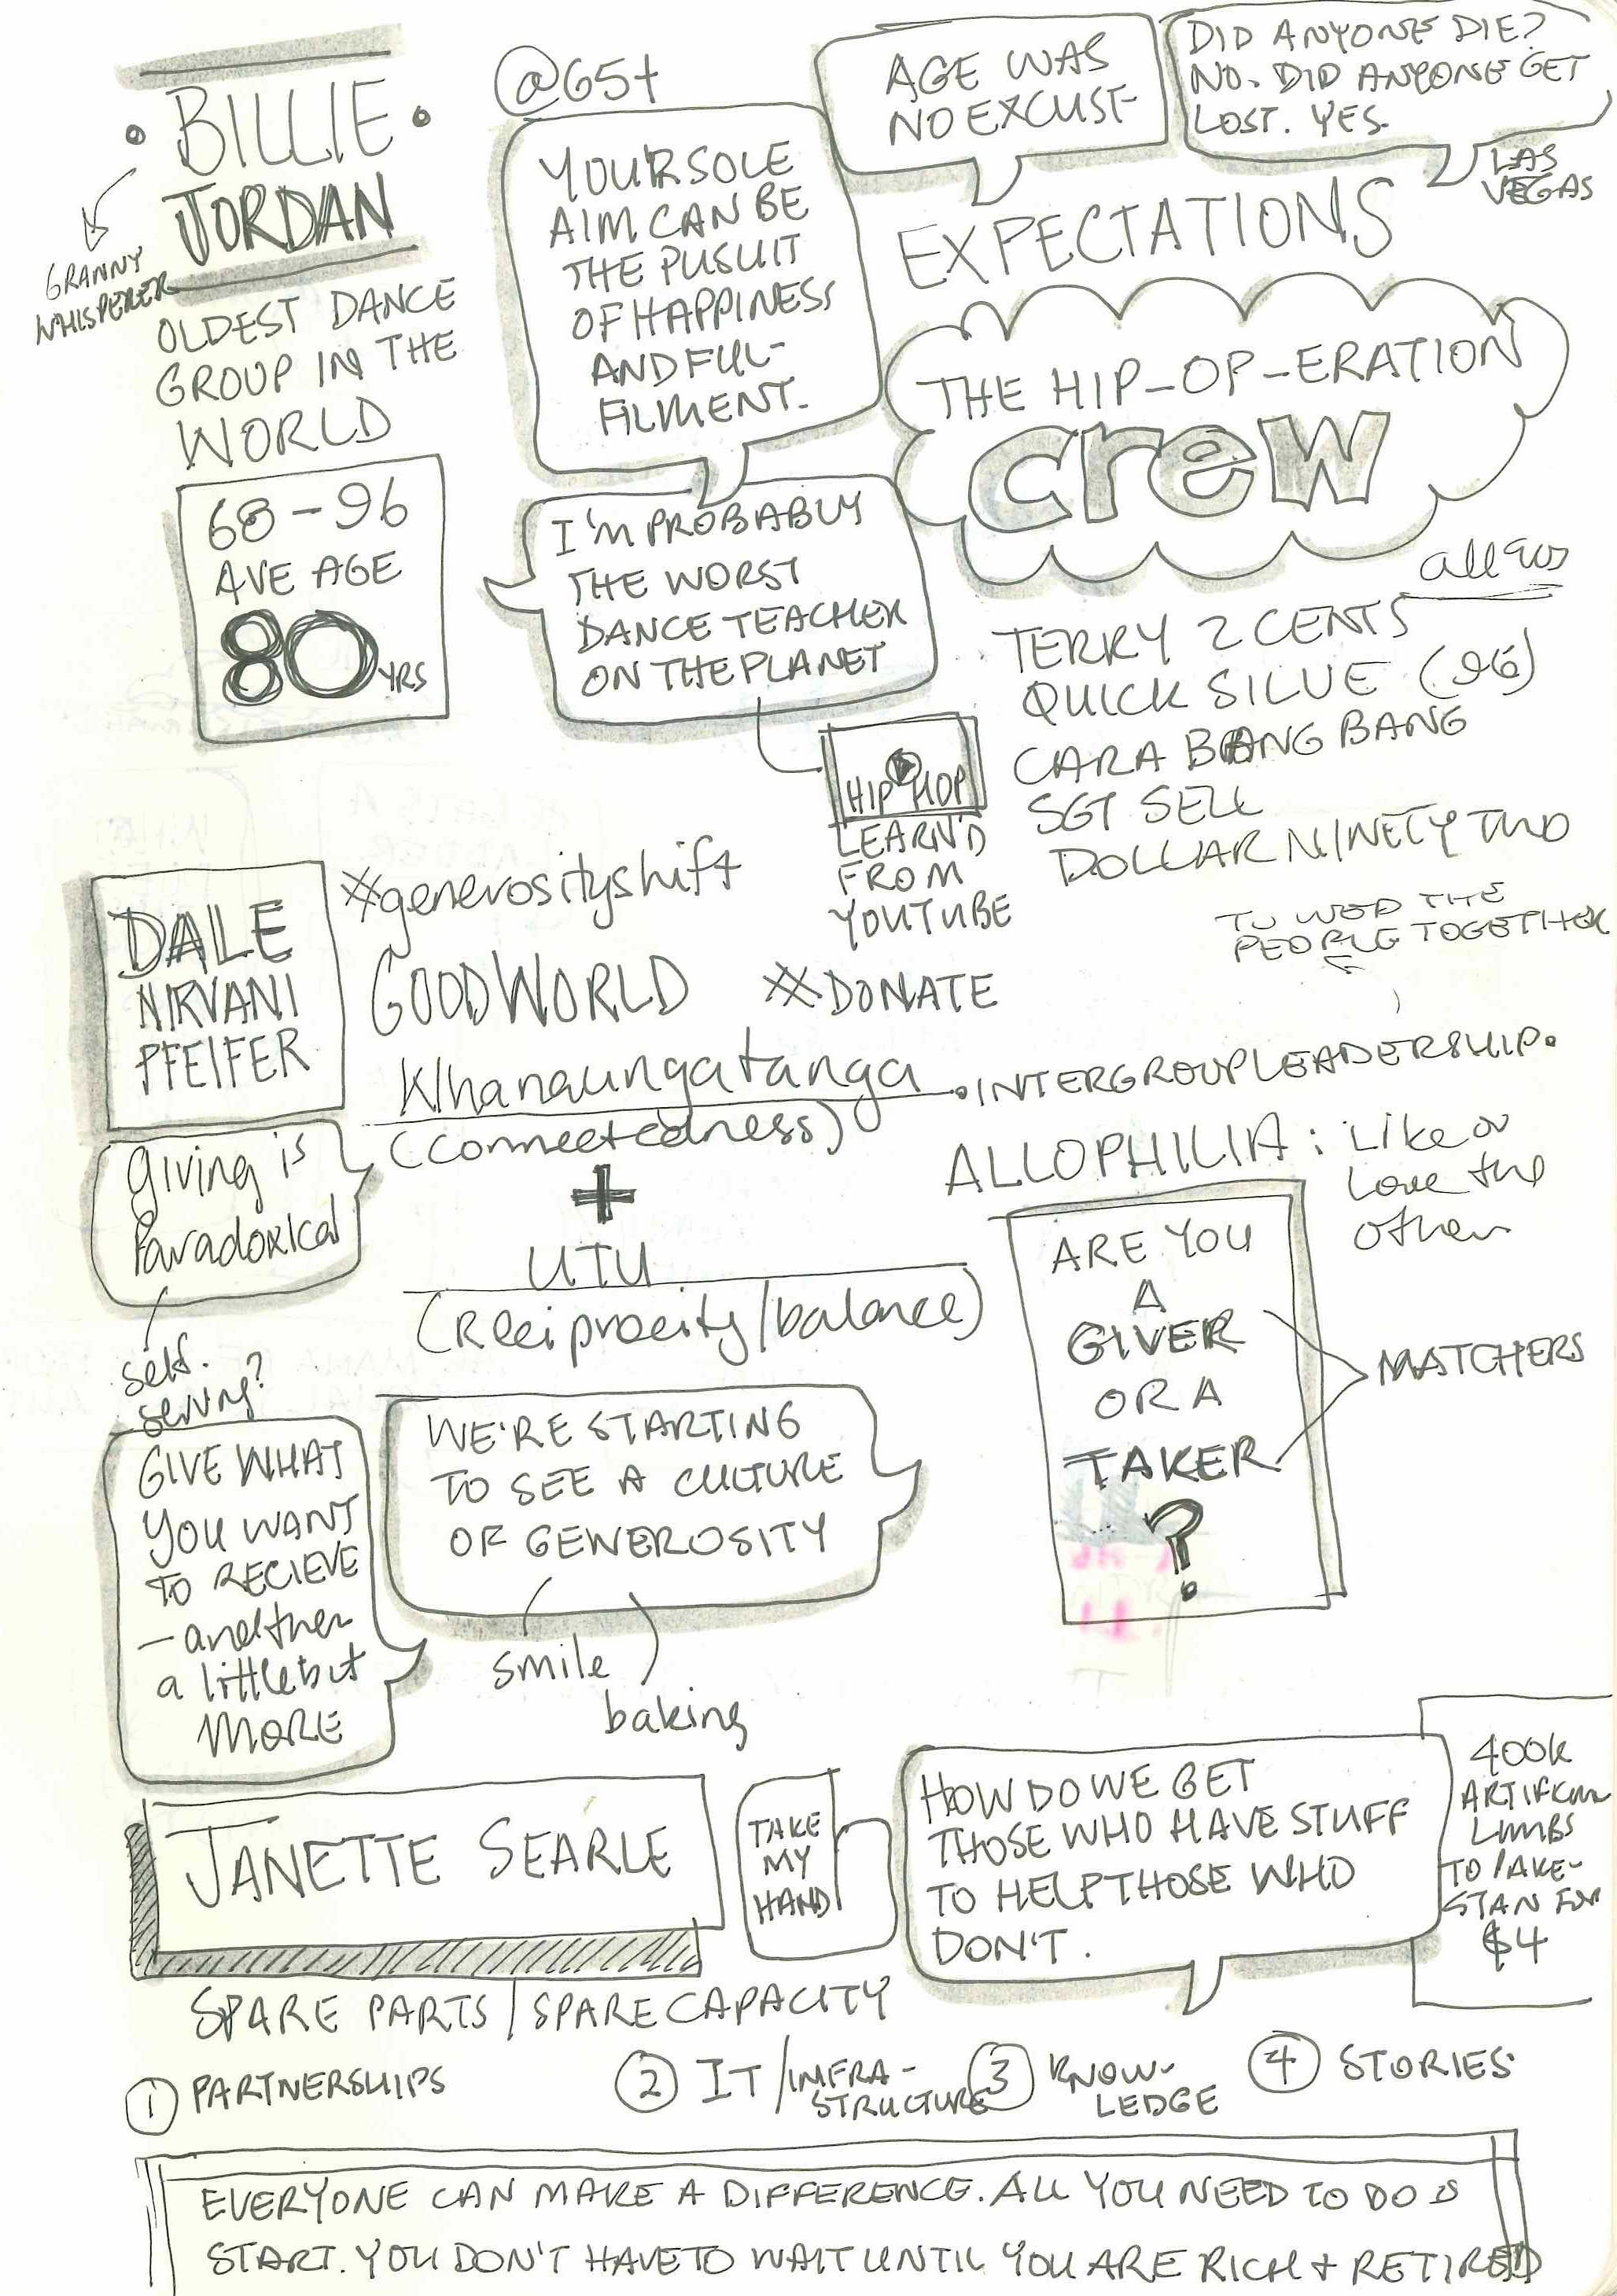 BILLIE
JORDAN
GRANNY
WHISPERER
OLDEST DANCE
GROUP IN THE
WORLD
68-96
AVE AGE
80 YRS
@65+
YOU'R SOLE
AIM CAN BE
THE PUSUIT
OF HAPPINESS
AND FUL-
FILMENT.
AGE WAS
NO EXCUSE
DID ANYONE DIE?
NO. DID ANYONE GET
LOST. YES.
LAS
VEGAS
EXPECTATIONS
THE HIP-OP-ERATION
crew
I'M PROBABLY
THE WORST
DANCE TEACHER
ON THE PLANET
HIP HOP
LEARN'D
FROM
YOUTUBE
all 90s
TERRY 2 CENTS
QUICK SILVE (96)
CARA BANG BANG
SGT SELL
DOLLAR NINETY TWO
DALE
NIRVANI
PFEIFER
#generosityshift
GOODWORLD #DONATE
TO WED THE
PEOPLE TOGETHER
Whanaungatanga
(connectedness)
+
UTU
(Reciprocity/balance)
• INTERGROUP LEADERSHIP •
ALLOPHILIA: Like or
Love the
other
giving is
Paradoxical
self-
serving?
ARE YOU
A
GIVER
OR A
TAKER
?
MATCHERS
GIVE WHAT
YOU WANT
TO RECIEVE
- and then
a little bit
MORE
WE'RE STARTING
TO SEE A CULTURE
OF GENEROSITY
smile
baking
JANETTE SEARLE
TAKE
MY
HAND
HOW DO WE GET
THOSE WHO HAVE STUFF
TO HELP THOSE WHO
DON'T.
400k
ARTIFICIAL
LIMBS
TO PAKE-
STAN FOR
$4
SPARE PARTS / SPARE CAPACITY
1 PARTNERSHIPS
2 IT/INFRA-
STRUCTURE
3 KNOW-
LEDGE
4 STORIES
EVERYONE CAN MAKE A DIFFERENCE. ALL YOU NEED TO DO IS
START. YOU DON'T HAVE TO WAIT UNTIL YOU ARE RICH + RETIRED